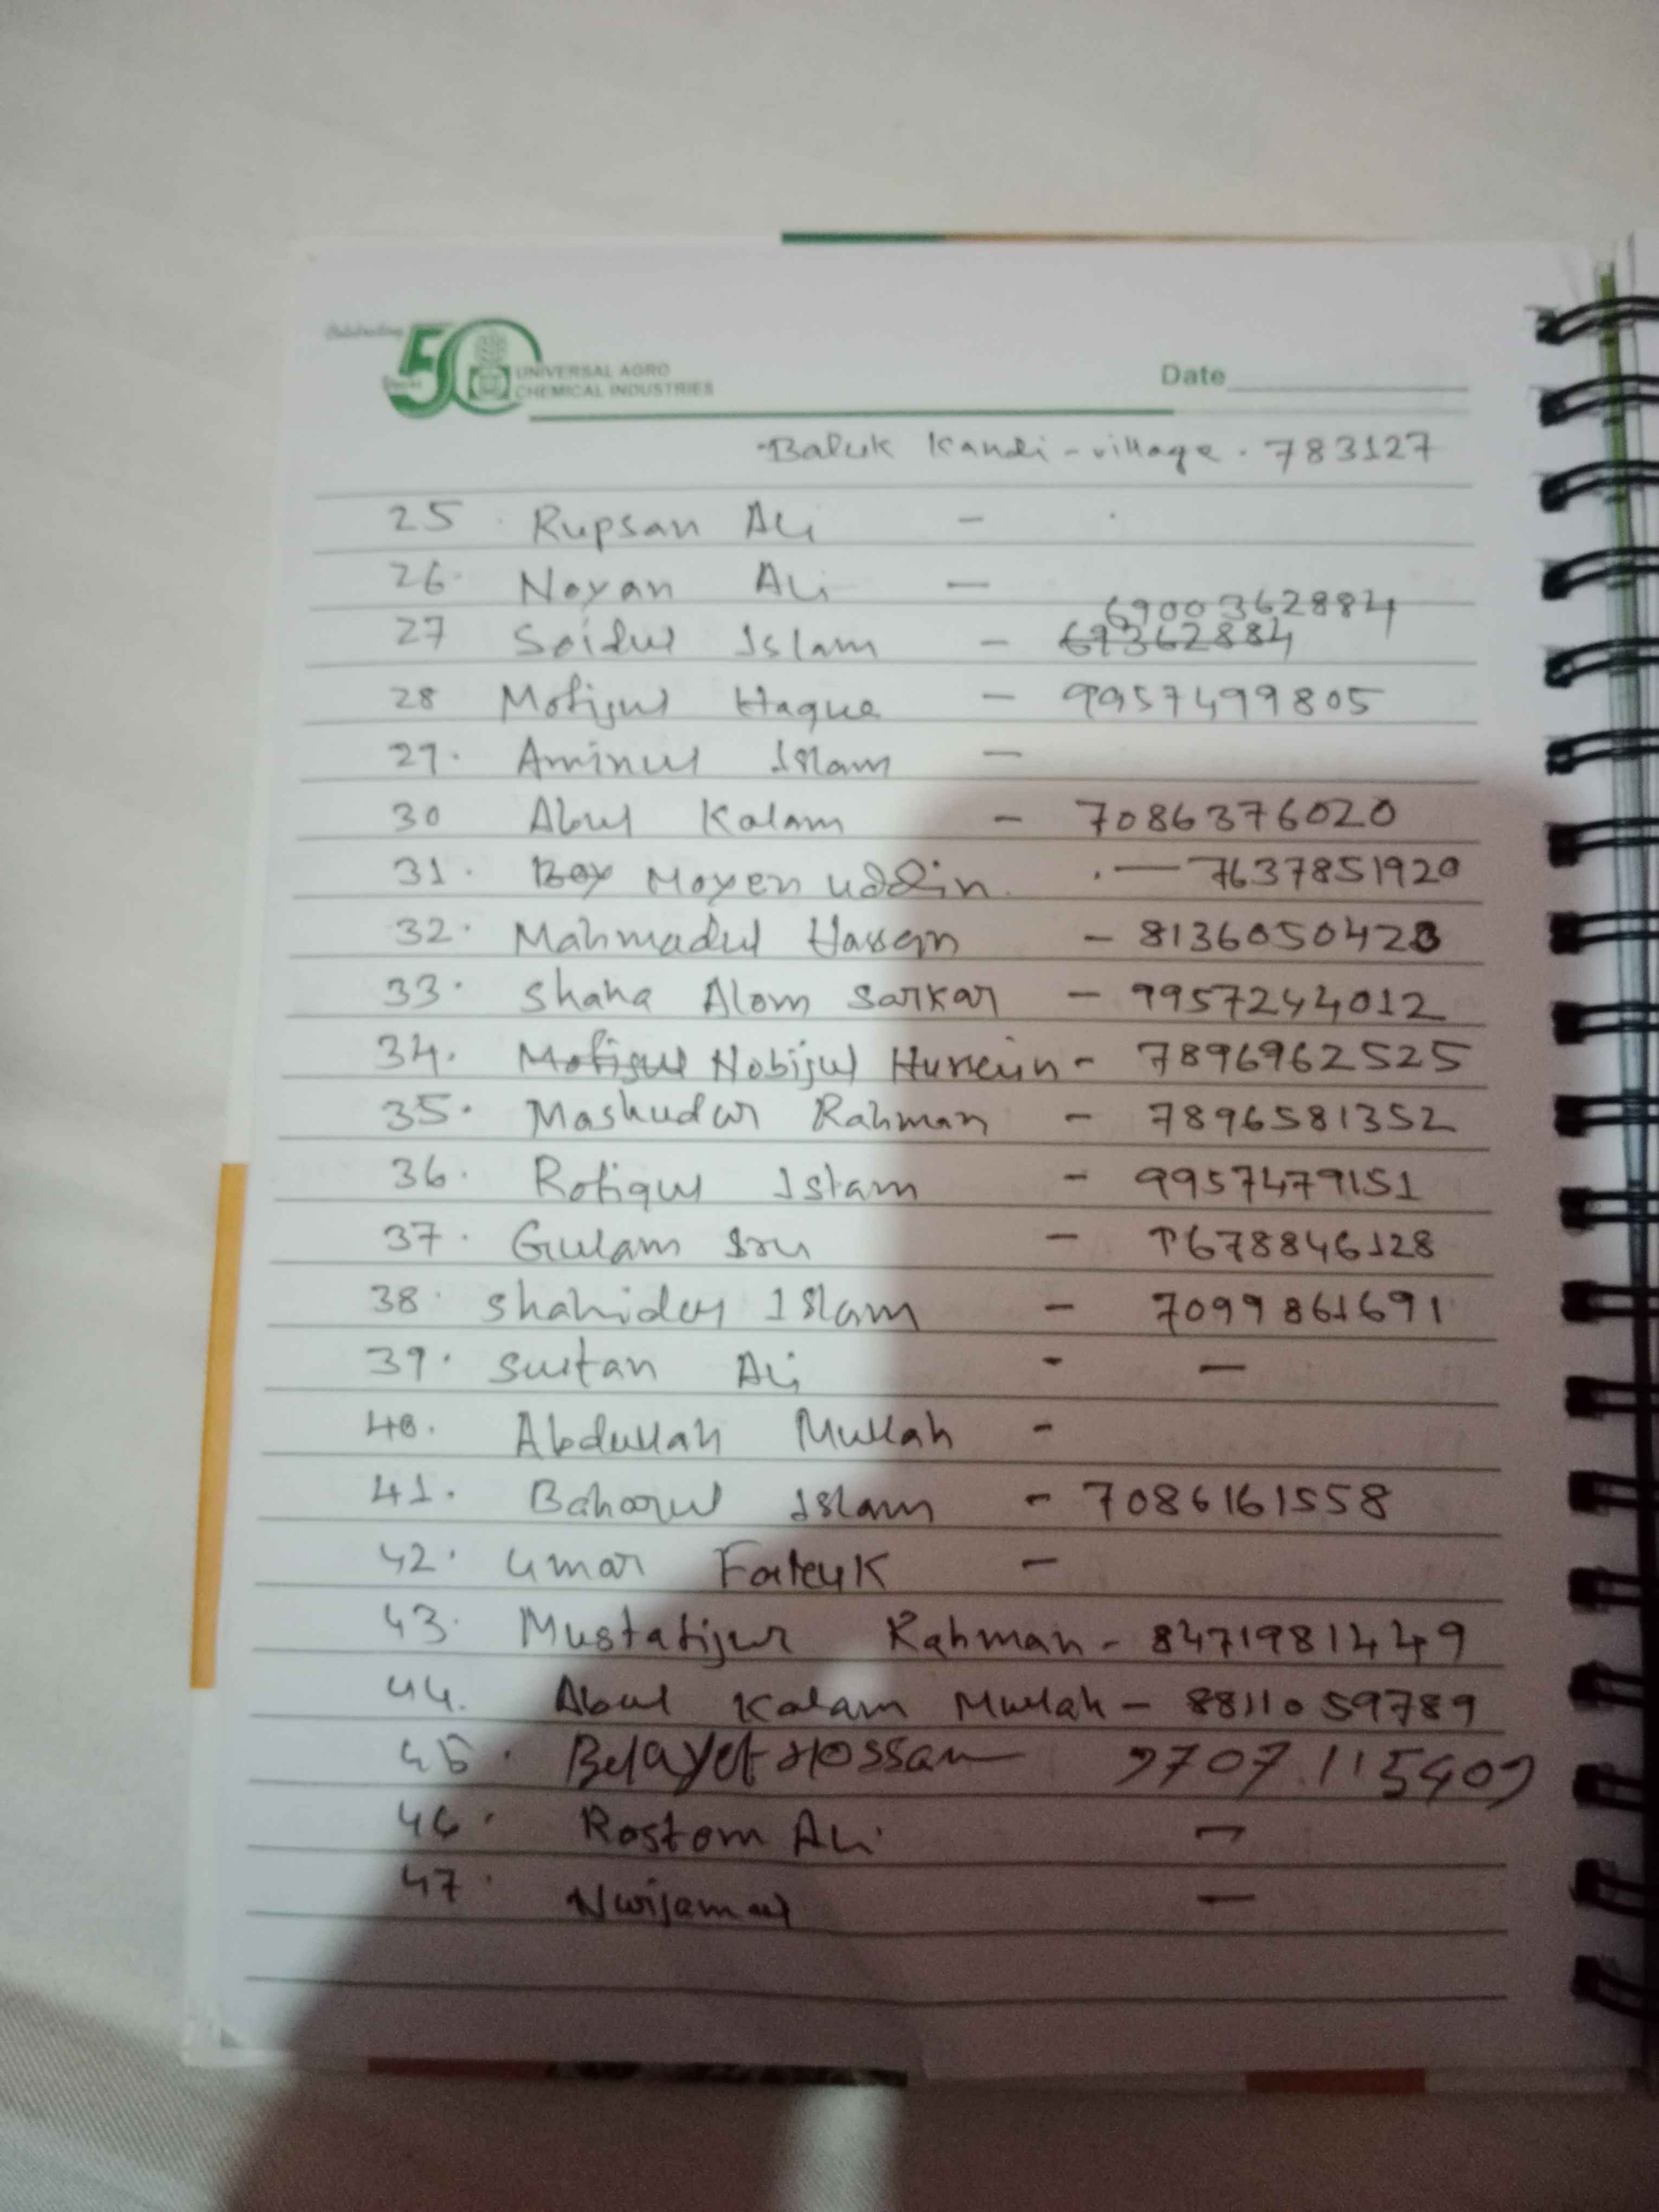 Celebrating
50
Years
UNIVERSAL AGRO
CHEMICAL INDUSTRIES
Date
Baluk Kandi - village . 783127
25 . Rupsan Ali -
26. Noyan Ali -
6900362884
27 Soidul Islam - 69362884
28 Mofijul Haque - 9957499805
29. Aminul Islam -
30 Abul Kalam - 7086376020
31. Boy Moyen uddin. - 7637851920
32. Mahmadul Hassen - 8136050428
33. Shaha Alom Sarkar - 9957244012
34. Mofijul Nobijul Hussein - 7896962525
35. Mashudur Rahman - 7896581352
36. Rofiqul Islam - 9957479151
37. Gulam - 9678846128
38. Shahidul Islam - 7099861691
39. Sultan Ali - -
40. Abdullah Mullah -
41. Baharul Islam - 7086161558
42. Umar -
43. Mustafijur Rahman - 8471981449
44. Abul Kalam Mullah - 8811059789
45. Belayet Hossan 9707115409
46. Rostom Ali -
47. -